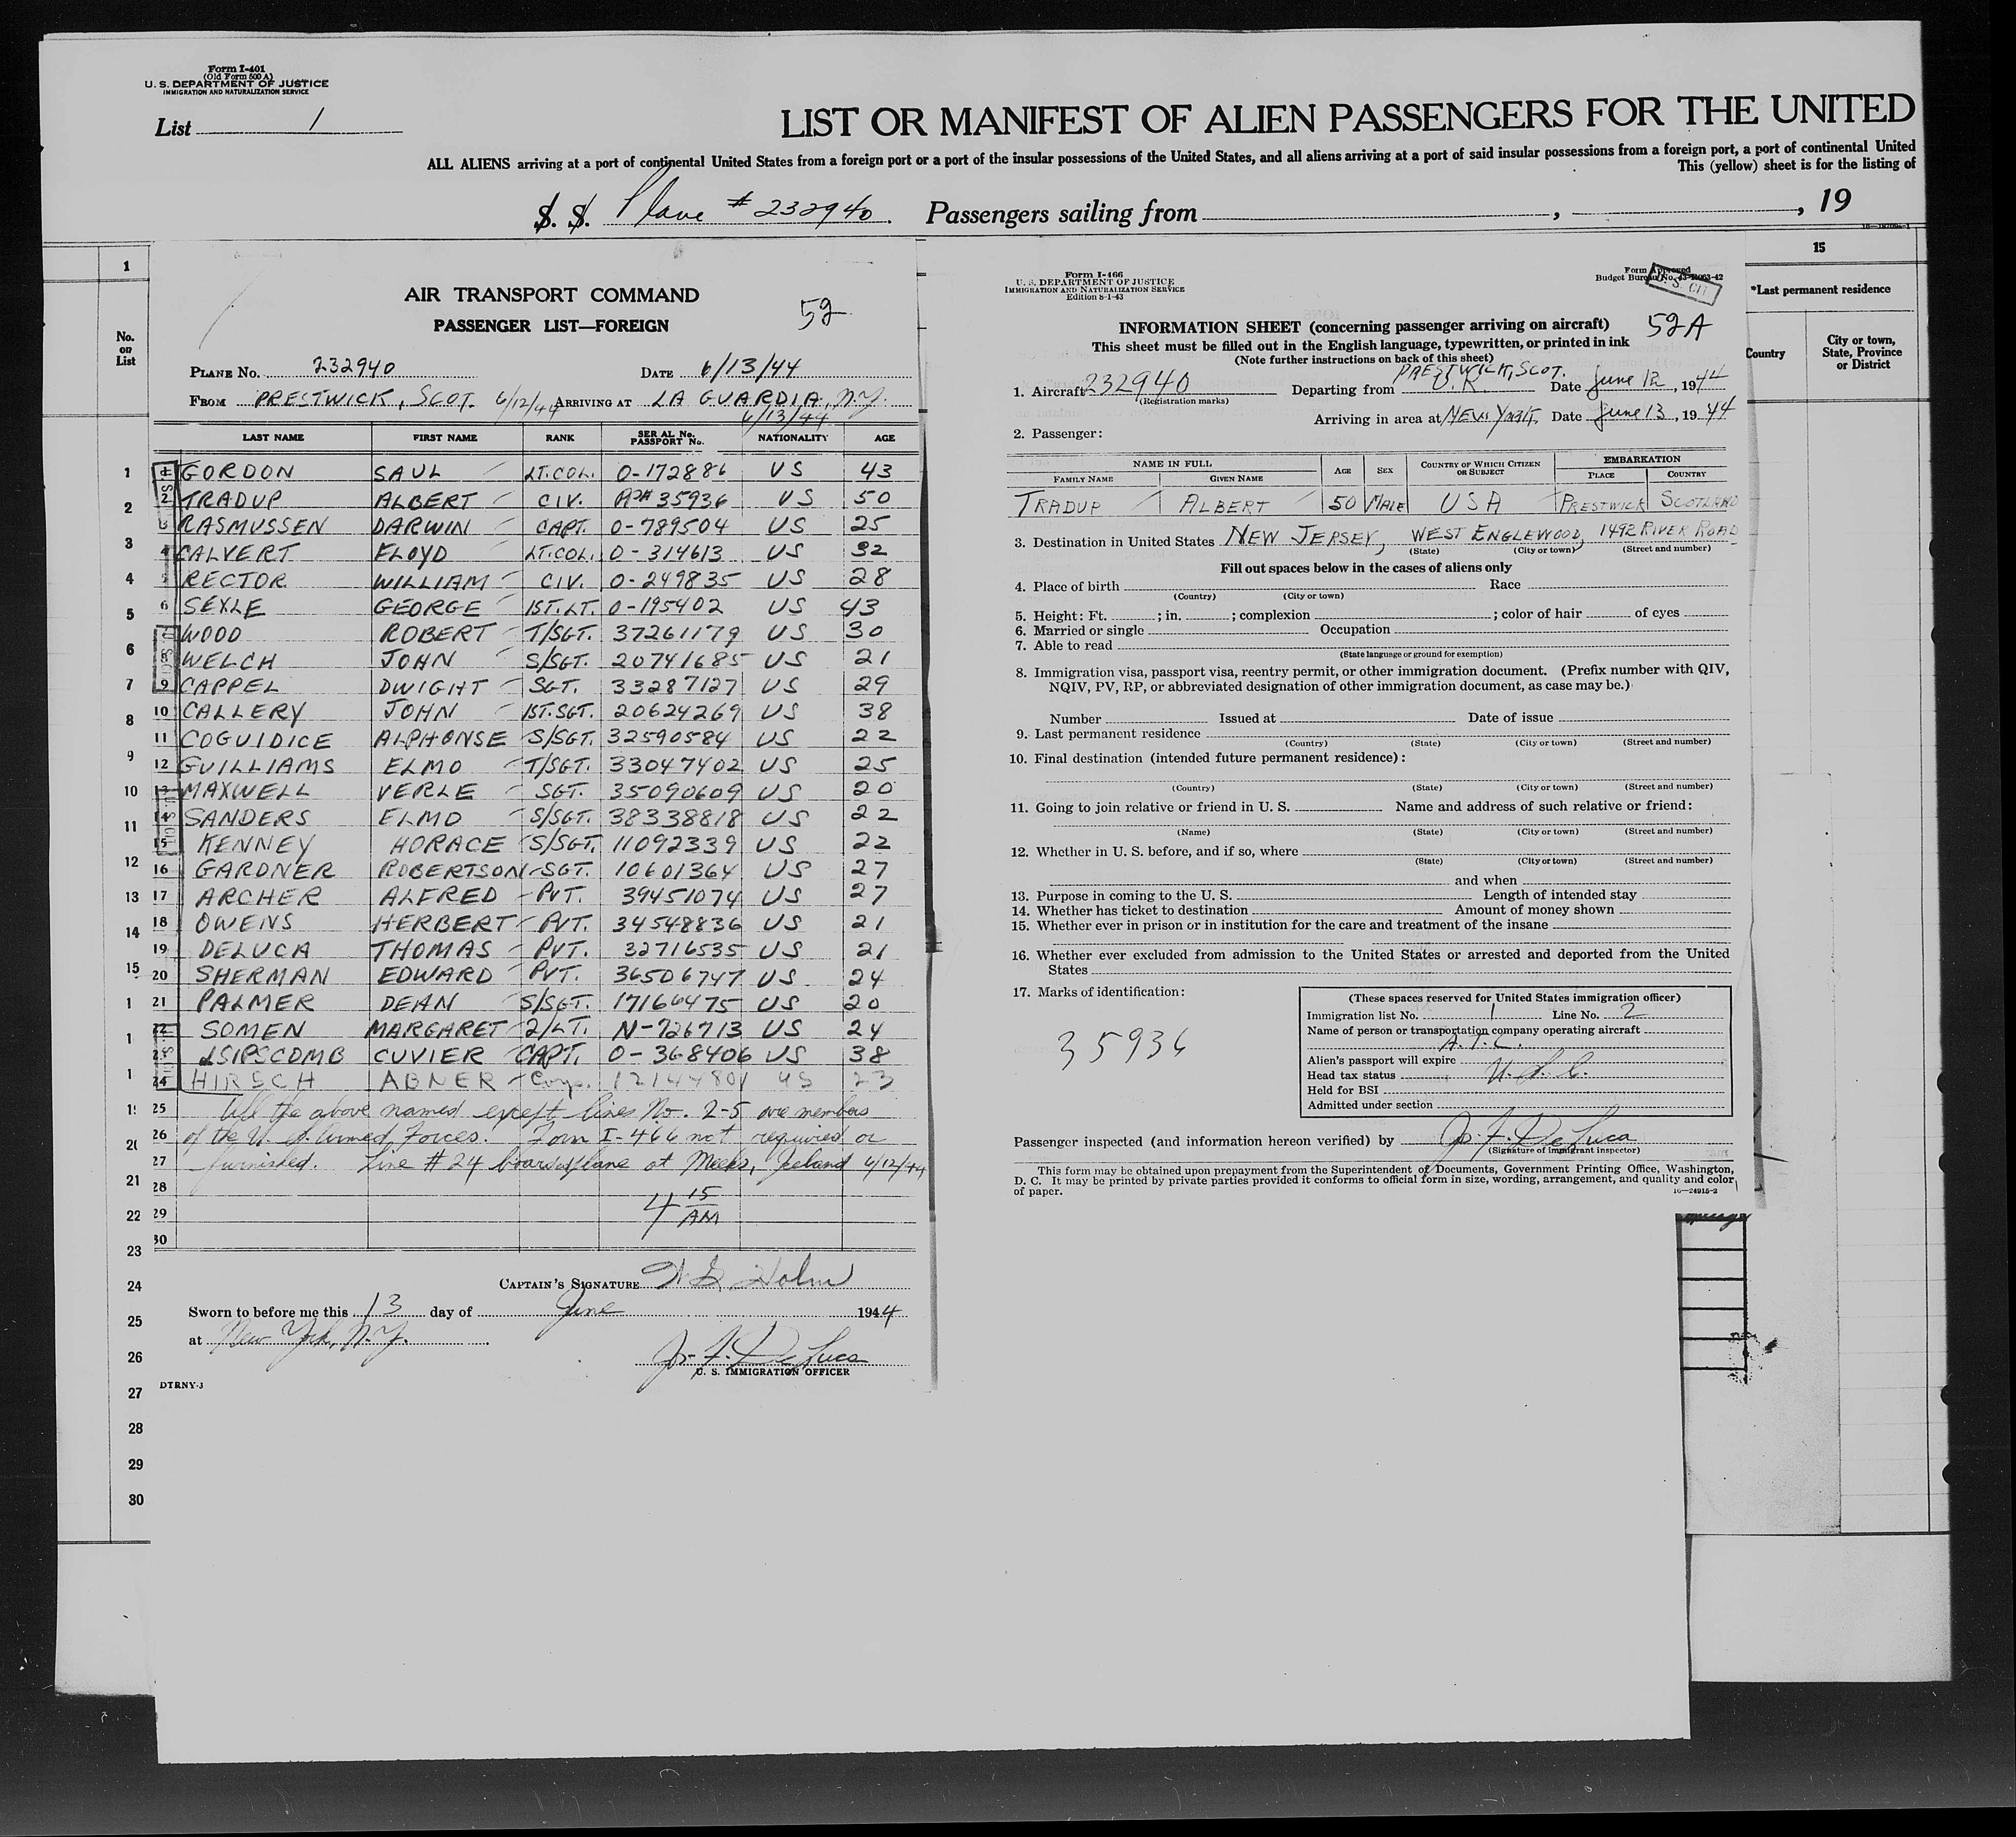 Form I-401
(Old Form 500 A)
U. S. DEPARTMENT OF JUSTICE
IMMIGRATION AND NATURALIZATION SERVICE
List 1
LIST OR MANIFEST OF ALIEN PASSENGERS FOR THE UNITED
ALL ALIENS arriving at a port of continental United States from a foreign port or a port of the insular possessions of the United States, and all aliens arriving at a port of said insular possessions from a foreign port, a port of continental United
This (yellow) sheet is for the listing of
S. S. Plane # 232940. Passengers sailing from , , 19
1
No. on List
AIR TRANSPORT COMMAND
PASSENGER LIST—FOREIGN
52
PLANE No. 232940 DATE 6/13/44
FROM PRESTWICK, SCOT. 6/12/44 ARRIVING AT LA GUARDIA, N.Y.
6/13/44
LAST NAME FIRST NAME RANK SERIAL No. PASSPORT No. NATIONALITY AGE
1 GORDON SAUL LT.COL. O-172886 US 43
2 TRADUP ALBERT CIV. 35936 US 50
3 RASMUSSEN DARWIN CAPT. O-789504 US 25
4 CALVERT FLOYD LT.COL. O-314613 US 32
5 RECTOR WILLIAM CIV. O-249835 US 28
6 SEXLE GEORGE 1ST.LT. O-195402 US 43
WOOD ROBERT T/SGT. 37261179 US 30
8 WELCH JOHN S/SGT. 20741685 US 21
9 CAPPEL DWIGHT SGT. 33287127 US 29
10 CALLERY JOHN 1ST.SGT. 20624269 US 38
11 COGUIDICE ALPHONSE S/SGT. 32590584 US 22
12 GUILLIAMS ELMO T/SGT. 33047402 US 25
13 MAXWELL VERLE SGT. 35090609 US 20
14 SANDERS ELMO S/SGT. 38338818 US 22
15 KENNEY HORACE S/SGT. 11092339 US 22
16 GARDNER ROBERTSON SGT. 10601364 US 27
17 ARCHER ALFRED PVT. 39451074 US 27
18 OWENS HERBERT PVT. 34548836 US 21
19 DELUCA THOMAS PVT. 32716535 US 21
20 SHERMAN EDWARD PVT. 36506747 US 24
21 PALMER DEAN S/SGT. 17166475 US 20
22 SOMEN MARGARET 2/LT. N-726713 US 24
LSIPSCOMB CUVIER CAPT. O-368406 US 38
24 HIRSCH ABNER Corp. 12144801 US 23
25 All the above named except lines No. 2-5 are members
26 of the U. S. Armed Forces. Form I-466 not required or
27 furnished. Line # 24 boarded plane at Meeks, Iceland 6/12/44
28
29 4 15 AM
30
CAPTAIN'S SIGNATURE Holm
Sworn to before me this 13 day of June 1944
at New York, N.Y.
Jos. F. DeLuca
U. S. IMMIGRATION OFFICER
DTRNY-3
1
2
3
4
5
6
7
8
9
10
11
12
13
14
15
1
1
1
1
21
22
23
24
25
26
27
28
29
30
Form I-466
U. S. DEPARTMENT OF JUSTICE
IMMIGRATION AND NATURALIZATION SERVICE
Edition 8-1-43
Form Approved
Budget Bureau No. 43-R063-42
U. S. CIT
52A
INFORMATION SHEET (concerning passenger arriving on aircraft)
This sheet must be filled out in the English language, typewritten, or printed in ink
(Note further instructions on back of this sheet)
PRESTWICK, SCOT.
1. Aircraft 232940 Departing from U.K. Date June 12, 1944
(Registration marks)
Arriving in area at NEW YORK Date June 13, 1944
2. Passenger:
NAME IN FULL AGE SEX COUNTRY OF WHICH CITIZEN OR SUBJECT EMBARKATION
FAMILY NAME GIVEN NAME PLACE COUNTRY
TRADUP ALBERT 50 MALE USA PRESTWICK SCOTLAND
3. Destination in United States NEW JERSEY, WEST ENGLEWOOD, 1492 RIVER ROAD
(State) (City or town) (Street and number)
Fill out spaces below in the cases of aliens only
4. Place of birth Race
(Country) (City or town)
5. Height: Ft. ; in. ; complexion ; color of hair of eyes
6. Married or single Occupation
7. Able to read
(State language or ground for exemption)
8. Immigration visa, passport visa, reentry permit, or other immigration document. (Prefix number with QIV,
NQIV, PV, RP, or abbreviated designation of other immigration document, as case may be.)
Number Issued at Date of issue
9. Last permanent residence
(Country) (State) (City or town) (Street and number)
10. Final destination (intended future permanent residence):
(Country) (State) (City or town) (Street and number)
11. Going to join relative or friend in U. S. Name and address of such relative or friend:
(Name) (State) (City or town) (Street and number)
12. Whether in U. S. before, and if so, where
(State) (City or town) (Street and number)
and when
13. Purpose in coming to the U. S. Length of intended stay
14. Whether has ticket to destination Amount of money shown
15. Whether ever in prison or in institution for the care and treatment of the insane
16. Whether ever excluded from admission to the United States or arrested and deported from the United
States
17. Marks of identification:
35936
(These spaces reserved for United States immigration officer)
Immigration list No. 1 Line No. 2
Name of person or transportation company operating aircraft
A.T.C.
Alien's passport will expire
Head tax status U.S.C.
Held for BSI
Admitted under section
Passenger inspected (and information hereon verified) by Jos. F. DeLuca
(Signature of immigrant inspector)
This form may be obtained upon prepayment from the Superintendent of Documents, Government Printing Office, Washington,
D. C. It may be printed by private parties provided it conforms to official form in size, wording, arrangement, and quality and color
of paper.
16—24915-2
15
*Last permanent residence
Country
City or town, State, Province or District